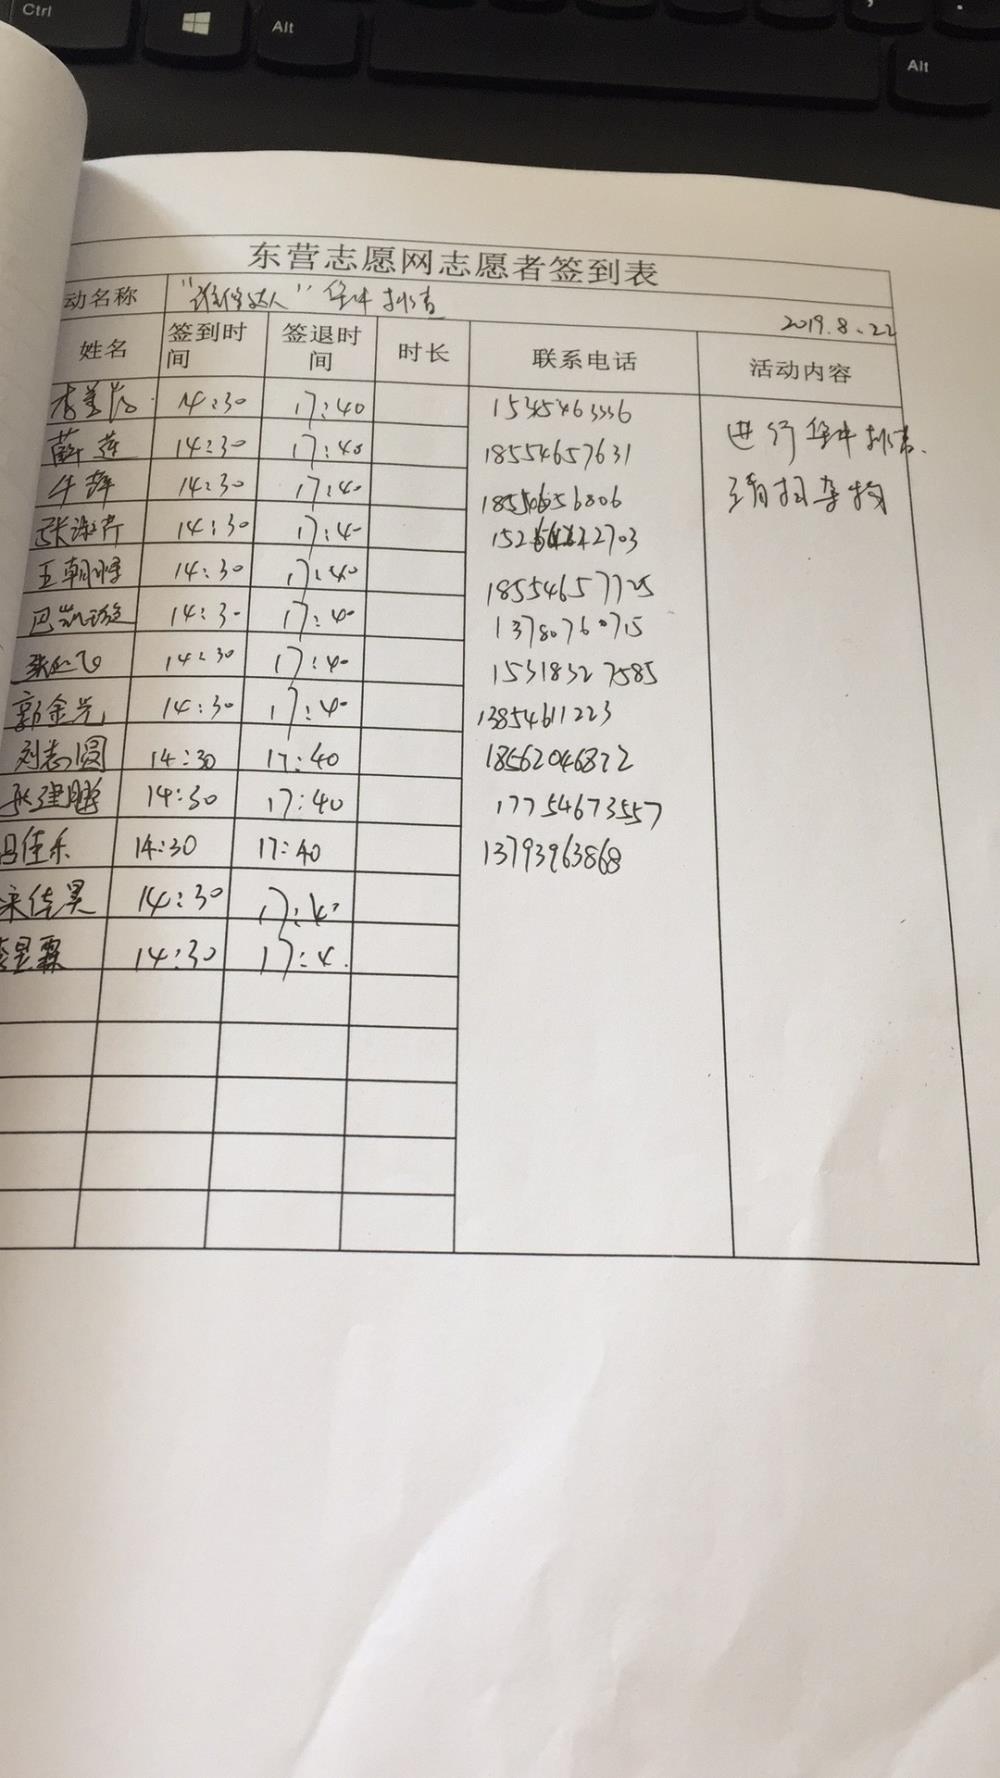 Ctrl
Alt
Alt
东营志愿网志愿者签到表
动名称
2019.8.22
姓名 签到时间 签退时间 时长 联系电话 活动内容
14:30 17:40
薛莲 14:30 17:40 18554657631
牛萍 14:30 17:40
14:30 17:40
王朝晖 14:30 17:40 18554657725
巴凯璇 14:30 17:40 13780760715
14:30 17:40 15318327585
郭金光 14:30 17:40 13854611223
刘志圆 14:30 17:40 18562046822
张建鹏 14:30 17:40 17754673557
吕佳乐 14:30 17:40 13793963868
宋佳昊 14:30 17:40
李昱霖 14:30 17:4
进行
清扫杂物